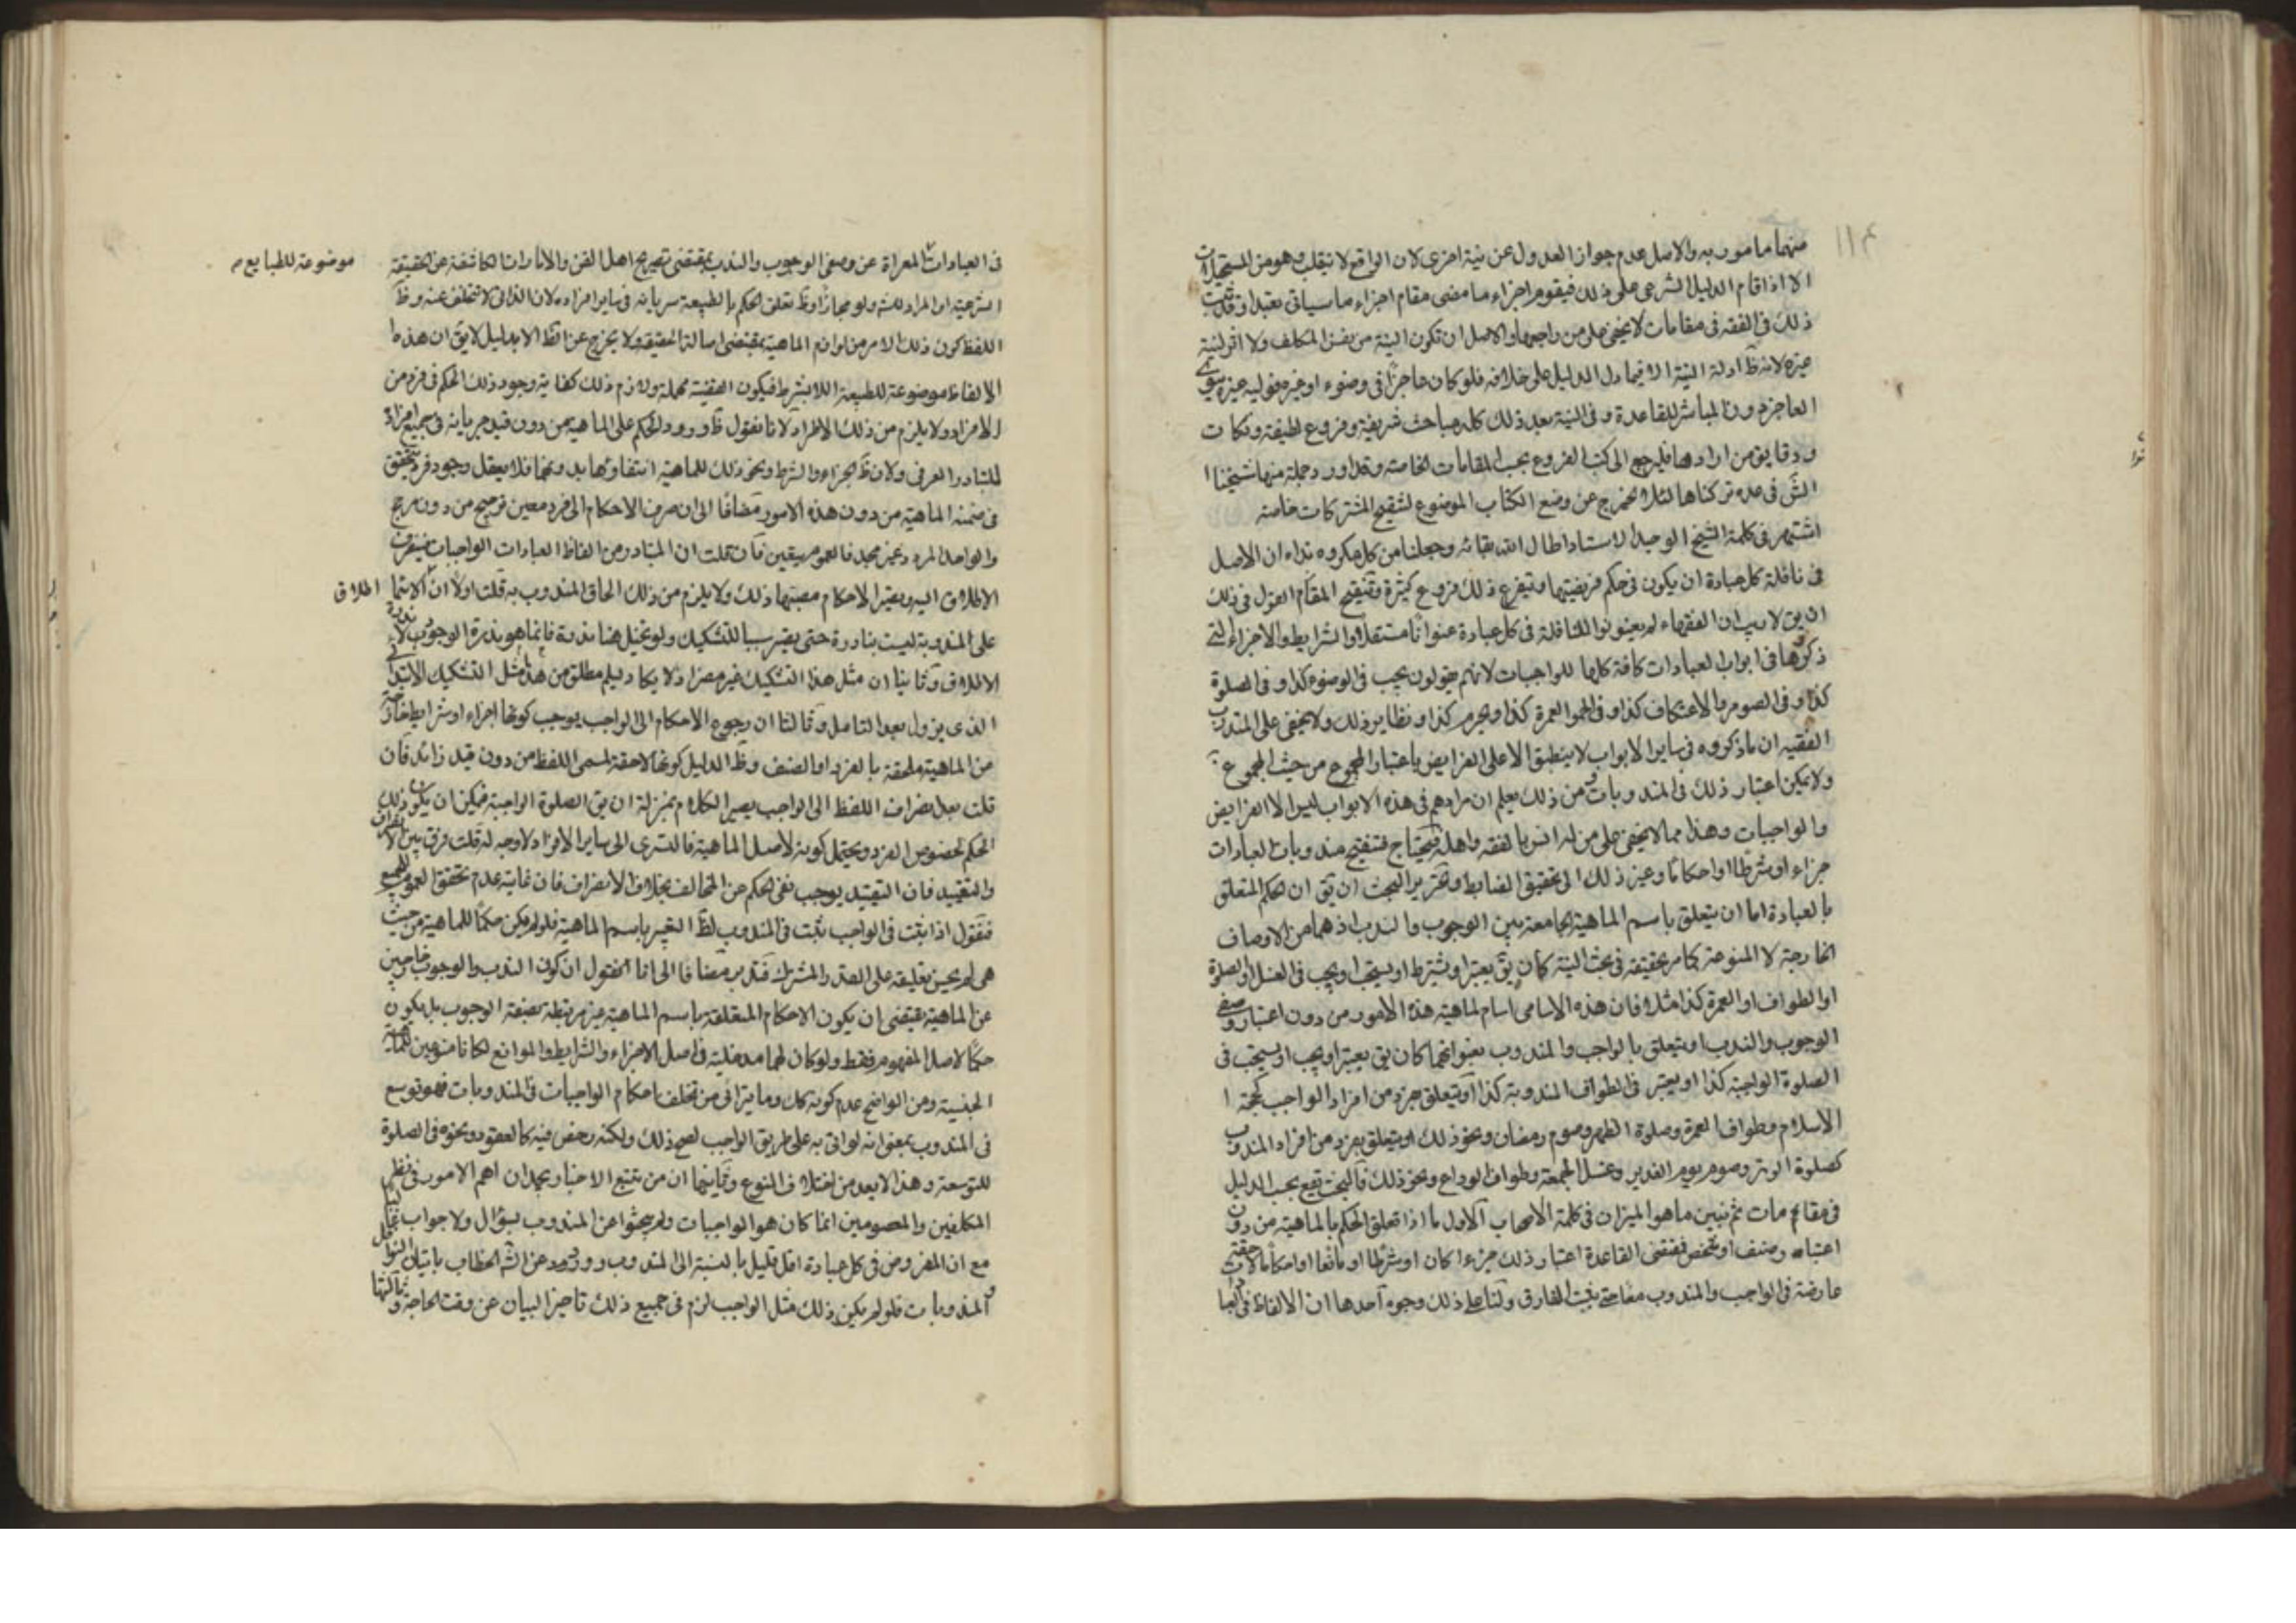 ١١٤
منهما مامور به والاصل عدم جواز العدول عن نية اخرى لان الواقع لا ينقلب وهو من المستحيلات
الا اذا قام الدليل الشرعي على ذلك فيقوم اجزاء ما مضى مقام اجزاء ما سياتي تعبدا وقد ثبت
ذلك في الفقه في مقامات لا يخفى على من راجعها والاصل ان تكون النية من نفس المكلف ولا اثر لنية
غيره لانه ظ ادلة النية الا فيما دل الدليل على خلافه فلو كان عاجزا في وضوء او غيره فوليه غيره ينوي
العاجز دون المباشر للقاعدة وفي النية بعد ذلك كله مباحث شريفة وفروع لطيفة ونكات
ودقايق من ارادها فليرجع الى كتب الفروع بحسب المقامات الخاصة وقد اورد جملة منها شيخنا
في عده تركناها لئلا نخرج عن وضع الكتاب الموضوع لتنقيح المشتركات خاصة
اشتهر في كلمة الشيخ الوحيد الاستاد اطال الله بقائه وجعلنا من كل مكروه فداه ان الاصل
في نافلة كل عبادة ان يكون في حكم فريضتها ويتفرع ذلك فروع كثيرة وتنقيح المقام القول في ذلك
ان يق لا ريب ان الفقهاء لم يعنونوا للنافلة في كل عبادة عنوانا مستقلا والشرايط والاجزاء التي
ذكروها في ابواب العبادات كافة كلها للواجبات لانهم يقولون يجب في الوضوء كذا وفي الصلوة
كذا وفي الصوم والاعتكاف كذا وفي الحج والعمرة كذا ويحرم كذا ونظاير ذلك ولا يخفى على المتدرب
الفقيه ان ما ذكروه في ساير الابواب لا ينطبق الا على الفرايض باعتبار المجموع من حيث المجموع
ولا يمكن اعتبار ذلك في المندوبات ومن ذلك يعلم ان مرادهم في هذه الابواب ليس الا الفرايض
والواجبات وهذا مما لا يخفى على من له انس بالفقه واهله فيحتاج تنقيح مندوبات العبادات
جزاء او شرطا او احكاما وغير ذلك الى تحقيق الضابط وتحرير البحث ان يق ان الحكم المتعلق
بالعبادة اما ان يتعلق باسم الماهية الجامعة بين الوجوب والندب اذ هما من الاوصاف
الخارجة لا المنوعة كما مر تحقيقه في بحث النية كأن يق يعتبر او يشترط او يستحب او يجب في الغسل او الصلوة
او الطواف او العمرة كذا مثلا فان هذه الاسامي اسام لماهية هذه الامور من دون اعتبار وصفي
الوجوب والندب او يتعلق بالواجب والمندوب بعنوانهما كان يق يعتبر او يجب او يستحب في
الصلوة الواجبة كذا او يعتبر في الطواف المندوبة كذا او يتعلق بفرد من افراد الواجب كحجة
الاسلام وطواف العمرة وصلوة الظهر وصوم رمضان ونحو ذلك او يتعلق بفرد من افراد المندوب
كصلوة الوتر وصوم يوم الغدير وغسل الجمعة وطواف الوداع ونحو ذلك فالبحث يقع بحسب الدليل
في مقامات ثم نبين ما هو الميزان في كلمة الاصحاب الاول ما اذا تعلق الحكم بالماهية من دون
اعتبار وصنف او شخص فمقتضى القاعدة اعتبار ذلك جزءا كان او شرطا او مانعا او احكاما لاحقة
عارضة في الواجب والمندوب معا حتى يثبت الفارق ولنا على ذلك وجوه احدها ان الالفاظ
في العبادات المعراة عن وصفي الوجوب والندب بمقتضى تصريح اهل الفن والامارات الكاشفة عن الحقيقة
موضوعة للطبايع
الشرعية او المراد منه ولو مجازا وظ تعلق الحكم بالطبيعة سريانه في ساير افراده لان الذاتي لا يتخلف عنه وظ
اللفظ كون ذلك الامر من لوازم الماهية بمقتضى اصالة الحقيقة ولا يخرج عن الظ الا بدليل لا يق ان هذه
الالفاظ موضوعة للطبيعة اللابشرط فيكون القضية مهملة ولازم ذلك كفاية وجود ذلك الحكم في فرد من
الافراد ولا يلزم من ذلك الاطراد لانا نقول ظ ورود الحكم على الماهية من دون قيد جريانه في جميع افراده
للتبادر العرفي ولان ظ الجزاء والشرط ونحو ذلك للماهية انتفاؤها بدونهما فلا يعقل وجود فرد يتحقق
في ضمنه الماهية من دون هذه الامور مضافا الى ان صرف الاحكام الى فرد معين ترجيح من دون مرجح
والواحد المردد غير مجد فالعموم يتعين فان قلت ان المتبادر من الفاظ العبادات الواجبات فينصرف
الاطلاق اليه ويصير الاحكام مصبها ذلك ولا يلزم من ذلك الحاق المندوب به قلت اولا ان
اطلاق
على المندوبة ليست بنادرة حتى يصير سببا للتشكيك ولو تخيل هنا ندرة فانما هو ندرة الوجود لا ندرة
الاطلاق وثانيا ان مثل هذا التشكيك غير مضر اذ لا يكاد يسلم مطلق من هذا مثل التشكيك الابتدائي
الذي يزول بعد التامل وثالثا ان رجوع الاحكام الى الواجب يوجب كونها اجزاء او شرايط خارجة
من الماهية ملحقة بالفرد او الصنف وظ الدليل كونها لاحقة لمسمى اللفظ من دون قيد زائد فان
قلت بعد انصراف اللفظ الى الواجب يصير الكلام بمنزلة ان يق الصلوة الواجبة فيمكن ان يكون ذلك
الحكم لخصوص الفرد ويحتمل كونه لاصل الماهية فالتسري الى ساير الافراد لا وجه له قلت فرق بين الانصراف
والتقييد فان التقييد يوجب نفي الحكم عن المخالف بخلاف الانصراف فان غايته عدم تحقق العموم للجميع
فنقول اذا ثبت في الواجب ثبت في المندوب لظ التعبير باسم الماهية فلو لم يكن حكما للماهية من حيث
هي لم يحسن تعليقه على القدر المشترك فتدبر مضافا الى انا نقول ان كون الندب والوجوب خارجين
عن الماهية يقتضي ان يكون الاحكام المتعلقة باسم الماهية غير مرتبطة بصفة الوجوب بل يكون
حكما لاصل المفهوم فقط ولو كان لهما مدخلية في اصل الاجزاء والشرايط والموانع لكانا منوعين للماهية
الجنسية ومن الواضح عدم كونه كك وما يترائى من تخلف احكام الواجبات في المندوبات فهو توسع
في المندوب بمعنى انه لو اتى به على طريق الواجب لصح ذلك ولكنه رخص فيه كالعقود ونحوه في الصلوة
للتوسعة وهذا لا يعد من اختلاف النوع وثانيها ان من تتبع الاخبار يجد ان اهم الامور في نظر
المكلفين والمعصومين انما كان هو الواجبات ولم يبحثوا عن المندوب بسؤال ولا جواب غالبا
مع ان المفروض في كل عبادة اقل قليل بالنسبة الى المندوب وورود عن الشه الخطاب باتيان النوافل
والمندوبات فلو لم يكن ذلك مثل الواجب لزم في جميع ذلك تاخير البيان عن وقت الحاجة وثالثها